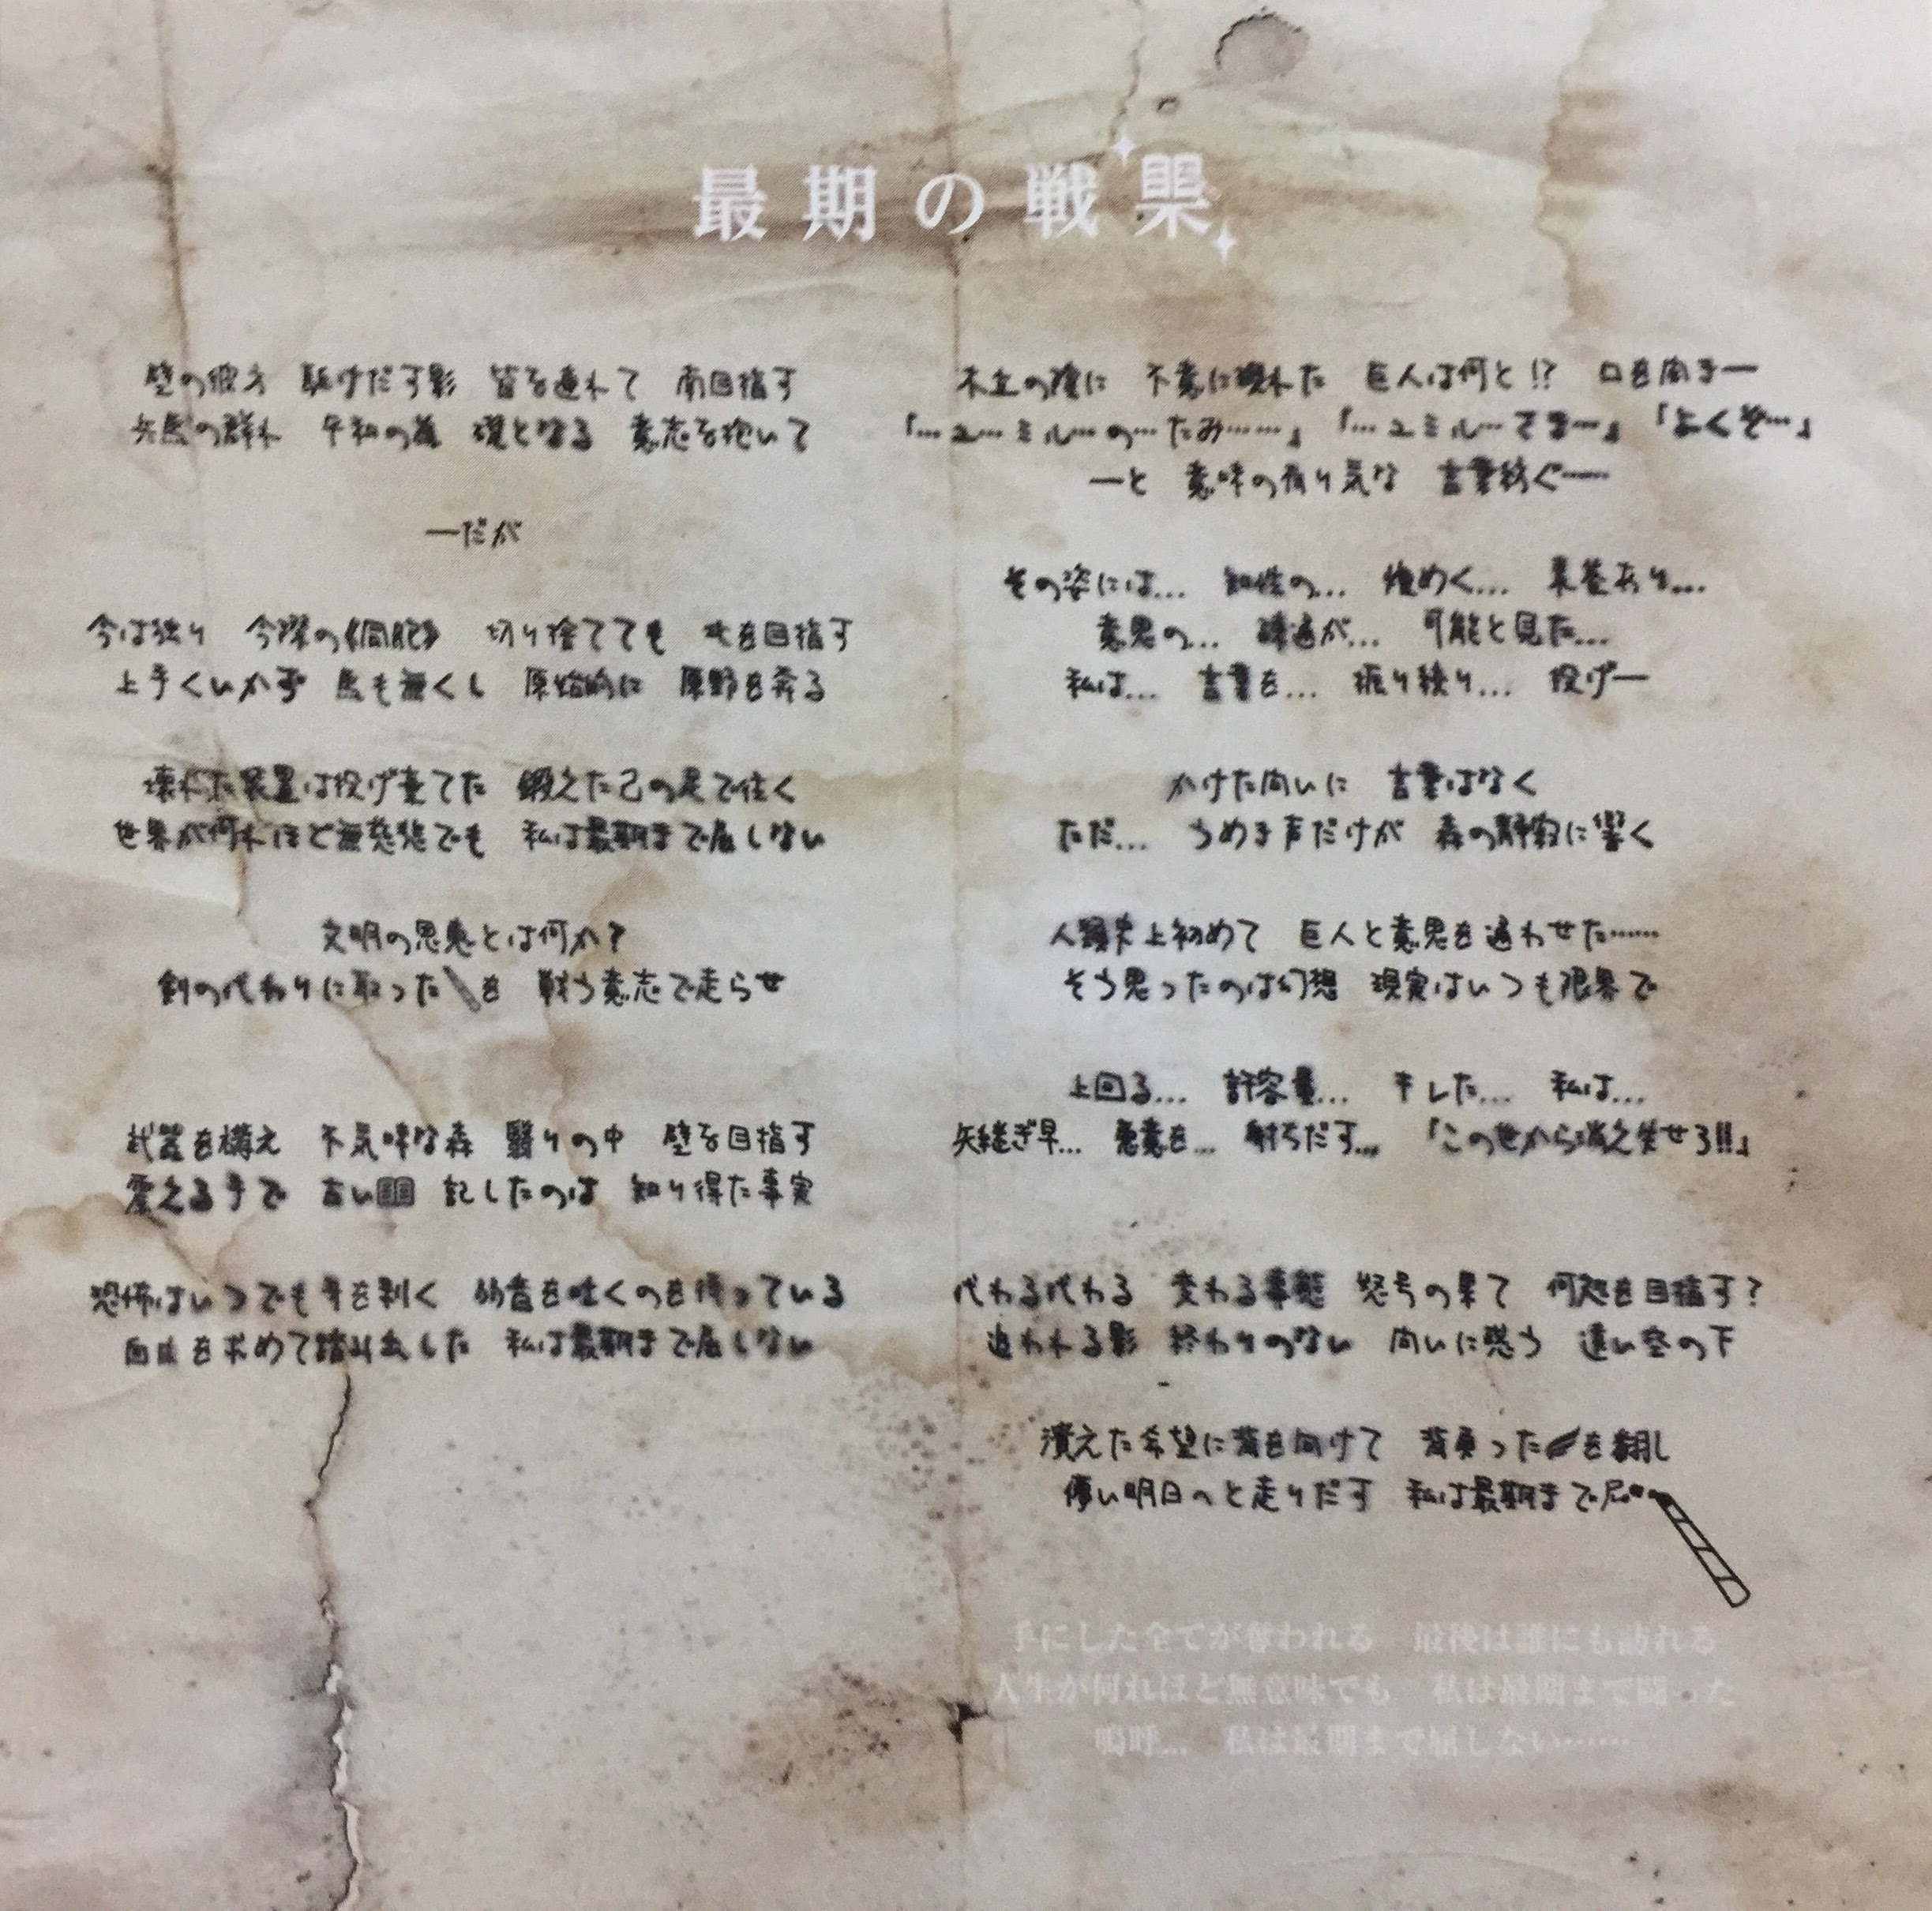 最期の戦果
壁の彼方 駆けだす影 皆を連れて 南目指す
兵馬の群れ 平和の為 礎となる 意志を抱いて
―だが
今は独り 今際の《同胞》 切り捨てても 北を目指す
上手くいかず 馬も無くし 原始的に 原野を奔る
壊れた装置は投げ棄てた 鍛えた己の足で往く
世界が何れほど無慈悲でも 私は最期まで屈しない
文明の恩恵とは何か?
剣の代わりに取った を 戦う意志で走らせ
武器を構え 不気味な森 翳りの中 壁を目指す
震える手で 古い 記したのは 知り得た事実
恐怖はいつでも牙を剥く 弱音を吐くのを待っている
自由を求めて踏み出した 私は最期まで屈しない
木立の陰に 不意に現れた 巨人は何と!? 口を開き―
「…ユ…ミル…の…たみ……」「…ユミル…さま…」「よくぞ…」
―と 意味の有り気な 言葉紡ぐ……
その姿には… 知性の… 煌めく… 素養あり…
意思の… 疎通が… 可能と見た…
私は… 言葉を… 振り絞り… 投げ―
かけた問いに 言葉はなく
ただ… うめき声だけが 森の静寂に響く
人類史上初めて 巨人と意思を通わせた……
そう思ったのは幻想 現実はいつも限界で
上回る… 許容量… キレた… 私は…
矢継ぎ早… 悪意を… 射ちだす… 「この世から消え失せろ!!」
代わる代わる 変わる事態 怒号の果て 何処を目指す?
追われる影 終わりのない 問いに惑う 遠い空の下
潰えた希望に背を向けて 背負った を翻し
儚い明日へと走りだす 私は最期まで屈
手にした全てが奪われる 最後は誰にも訪れる
人生が何れほど無意味でも 私は最期まで闘った
嗚呼… 私は最期まで屈しない……